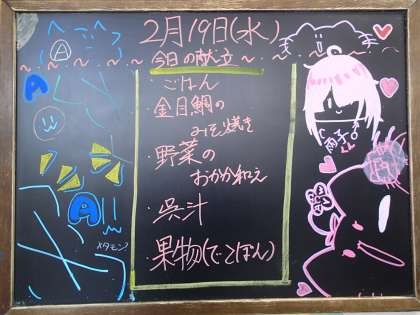 2月19日(水)
~今日の献立~
・ごはん
・金目鯛の
みそ焼き
・野菜の
おかか和え
・呉汁
・果物(でこぽん)
A
A
A
メタモン